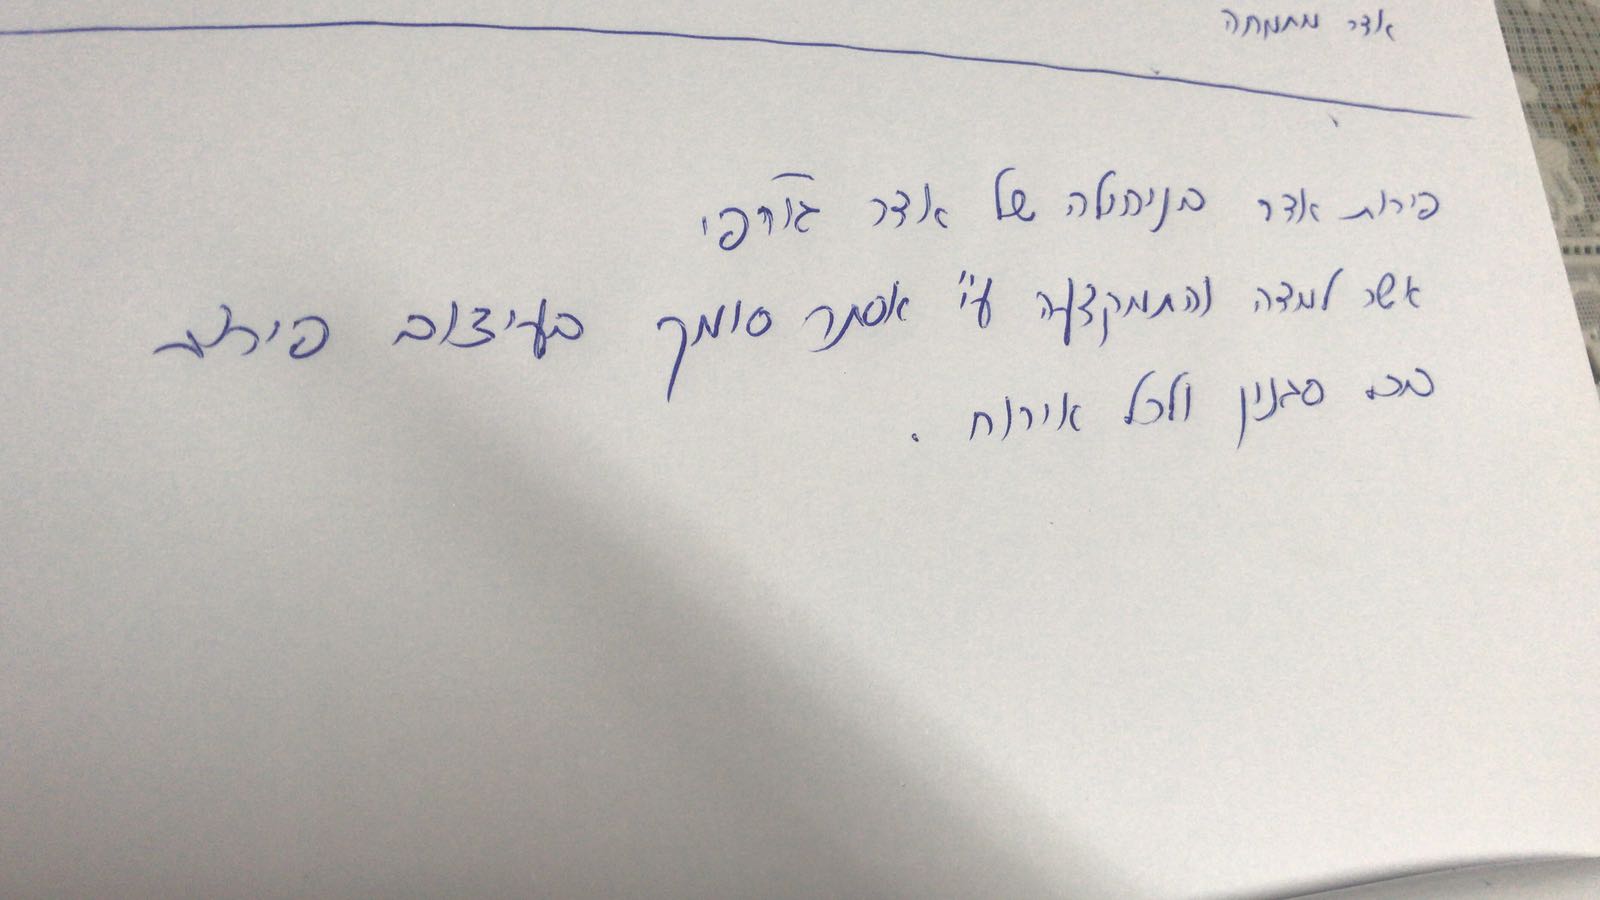 אדר מתמחה
פירות אדר בניהולה של אדר גורפי
אשר למדה והתמקצעה ע״י אסתר סומך בעיצוב פירות
מכל סגנון ולכל אירוח .